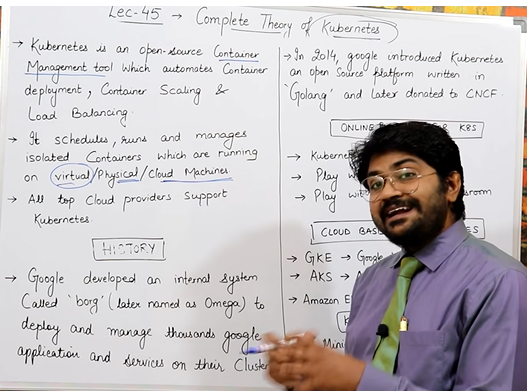 Lec-45 → Complete Theory of Kubernetes
→ Kubernetes is an open-source Container
Management tool which automates Container
deployment, Container Scaling &
Load Balancing.
→ It schedules, runs and manages
isolated Containers which are running
on virtual/Physical/Cloud Machines
→ All top Cloud providers support
Kubernetes.
HISTORY
→ Google developed an internal system
Called 'borg' (later named as Omega) to
deploy and manage thousands google
application and services on their Cluster
→ In 2014, google introduced Kubernetes
an open Source platform written in
'Golang' and Later donated to CNCF.
ONLINE K8S
→ Kuberne
→ Play w
→ Play wit room
CLOUD BAS ES
→ GKE → Google
→ AKS → A
→ Amazon E
Mini